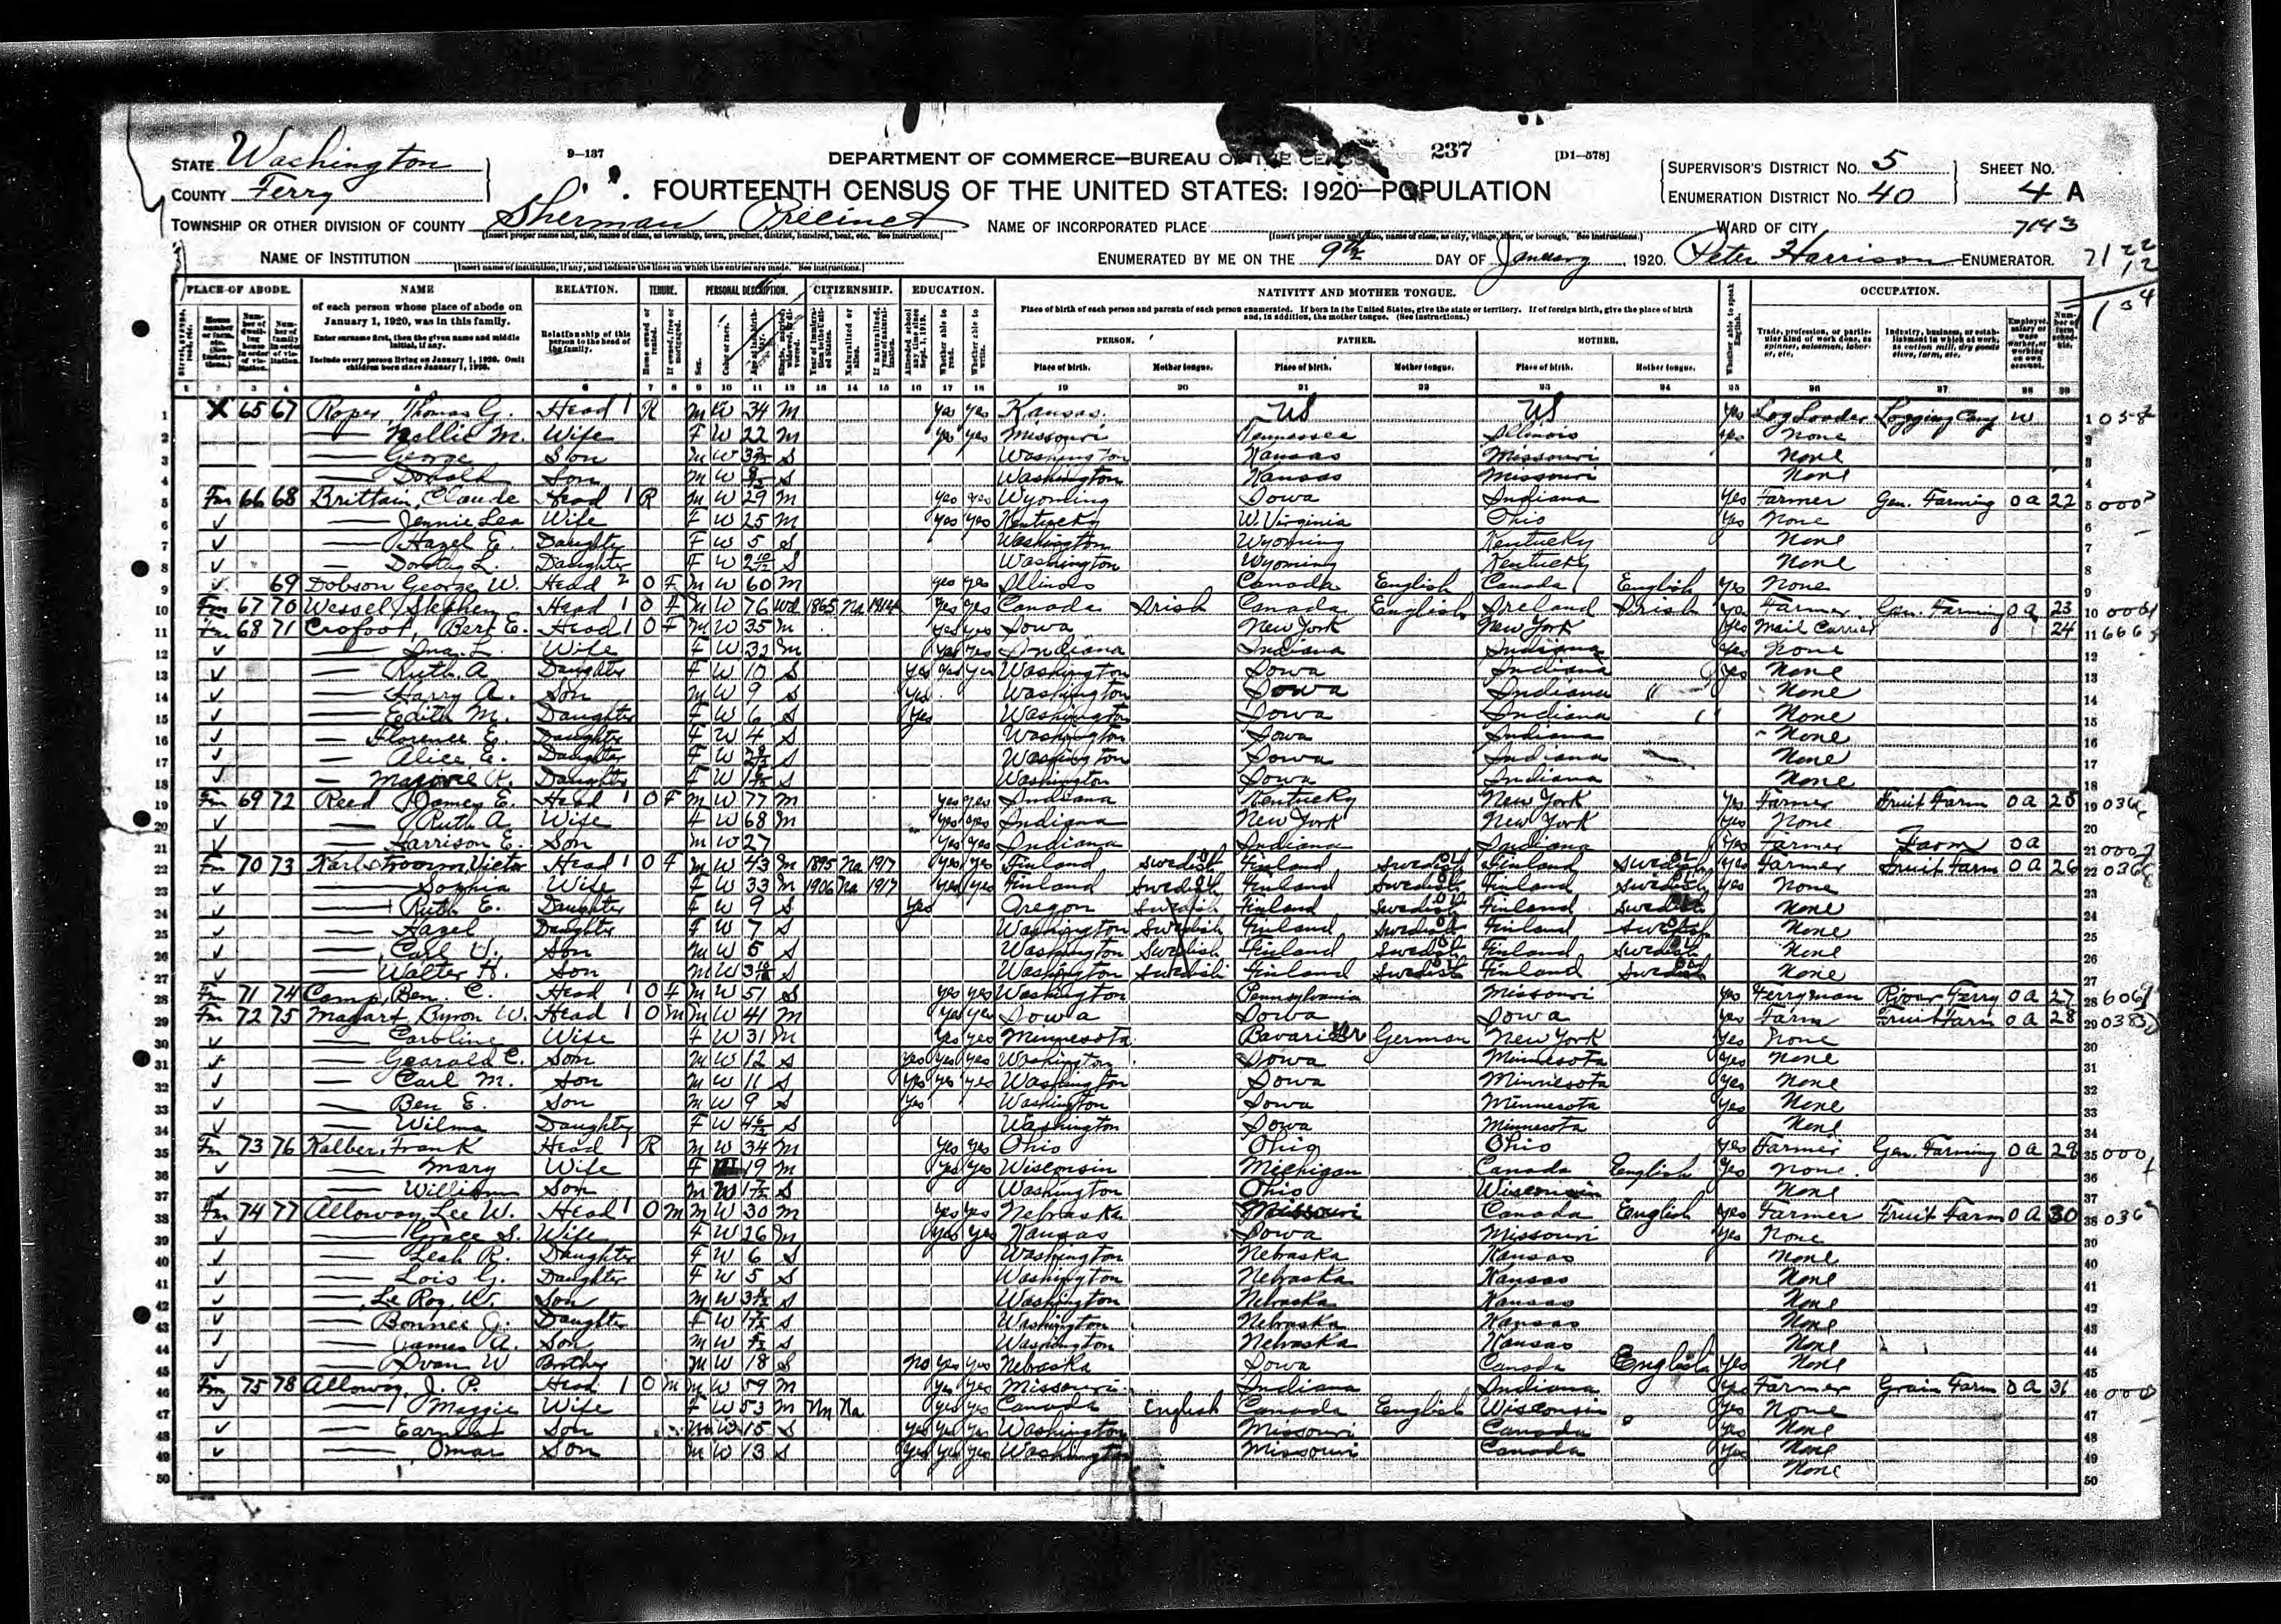 STATE Washington
COUNTY Ferry
9-137
DEPARTMENT OF COMMERCE—BUREAU OF THE CENSUS
237
[D1-578]
SUPERVISOR'S DISTRICT NO. 5
ENUMERATION DISTRICT NO. 40
SHEET NO. 4 A
FOURTEENTH CENSUS OF THE UNITED STATES: 1920—POPULATION
TOWNSHIP OR OTHER DIVISION OF COUNTY Sherman Precinct
NAME OF INCORPORATED PLACE
WARD OF CITY
7143
NAME OF INSTITUTION
ENUMERATED BY ME ON THE 9th DAY OF January, 1920. Peter Harrison ENUMERATOR.
PLACE OF ABODE. NAME RELATION. TENURE. PERSONAL DESCRIPTION. CITIZENSHIP. EDUCATION. NATIVITY AND MOTHER TONGUE. OCCUPATION.
of each person whose place of abode on January 1, 1920, was in this family.
Enter surname first, then the given name and middle initial, if any.
Include every person living on January 1, 1920. Omit children born since January 1, 1920.
Relationship of this person to the head of the family.
Place of birth of each person and parents of each person enumerated. If born in the United States, give the state or territory. If of foreign birth, give the place of birth and, in addition, the mother tongue. (See instructions.)
PERSON. FATHER. MOTHER.
Place of birth. Mother tongue. Place of birth. Mother tongue. Place of birth. Mother tongue.
1 2 3 4 5 6 7 8 9 10 11 12 13 14 15 16 17 18 19 20 21 22 23 24 25 26 27 28 29
1 X 65 67 Roper, Thomas G. Head 1 R M W 34 M yes yes Kansas US US yes Log Loader Logging Camp W
2 — Nellie M. Wife F W 22 M yes yes Missouri Tennessee Illinois yes None
3 — George Son M W S Washington Kansas Missouri None
4 — Donald Son M W S Washington Kansas Missouri None
5 Fm 66 68 Brittain, Claude Head 1 R M W 29 M yes yes Wyoming Iowa Indiana yes Farmer Gen. Farming OA 22
6 — Jennie Lea Wife F W 25 M yes yes Kentucky W. Virginia Ohio yes None
7 — Hazel E. Daughter F W 5 S Washington Wyoming Kentucky None
8 — Dorothy L. Daughter F W 2 10/12 S Washington Wyoming Kentucky None
9 69 Dobson George W. Head 2 O F M W 60 M yes yes Illinois Canada English Canada English yes None
10 Fm 67 70 Wessel, Stephen Head 1 O F M W 76 Wd 1865 Na 1914 yes yes Canada Irish Canada English Ireland Irish yes Farmer Gen. Farming OA 23
11 Fm 68 71 Crofoot, Bert E. Head 1 O F M W 35 M yes yes Iowa New York New York yes Mail Carrier 24
12 — Ina L. Wife F W 32 M yes yes Indiana Indiana Indiana yes None
13 — Ruth A. Daughter F W 10 S yes yes yes Washington Iowa Indiana yes None
14 — Harry A. Son M W 9 S yes Washington Iowa Indiana None
15 — Edith M. Daughter F W 6 S yes Washington Iowa Indiana None
16 — Florence E. Daughter F W 4 S Washington Iowa Indiana None
17 — Alice E. Daughter F W S Washington Iowa Indiana None
18 — Marjorie Daughter F W S Washington Iowa Indiana None
19 Fm 69 72 Reed James E. Head 1 O F M W 77 M yes yes Indiana Kentucky New York yes Farmer Fruit Farm OA 25
20 — Ruth A. Wife F W 68 M yes yes Indiana New York New York yes None
21 — Harrison E. Son M W 27 yes yes Indiana Indiana Indiana yes Farmer Farm OA
22 Fm 70 73 Karlstroom, Victor Head 1 O F M W 43 M 1895 Na 1917 yes yes Finland Swedish Finland Swedish Finland Swedish yes Farmer Fruit Farm OA 26
23 — Sophia Wife F W 33 M 1906 Na 1917 yes yes Finland Swedish Finland Swedish Finland Swedish yes None
24 — Ruth E. Daughter F W 9 S yes Oregon Swedish Finland Swedish Finland Swedish None
25 — Hazel Daughter F W 7 S Washington Swedish Finland Swedish Finland Swedish None
26 — Carl V. Son M W 5 S Washington Swedish Finland Swedish Finland Swedish None
27 — Walter H. Son M W 3 10/12 S Washington Swedish Finland Swedish Finland Swedish None
28 Fm 71 74 Camp, Ben. C. Head 1 O F M W 51 S yes yes Washington Pennsylvania Missouri yes Ferryman River Ferry OA 27
29 Fm 72 75 Magart, Byron W. Head 1 O M M W 41 M yes yes Iowa Iowa Iowa yes Farm Fruit Farm OA 28
30 — Caroline Wife F W 31 M yes yes Minnesota Bavaria German New York yes None
31 — Gearald C. Son M W 12 S yes yes yes Washington Iowa Minnesota yes None
32 — Carl M. Son M W 11 S yes yes yes Washington Iowa Minnesota yes None
33 — Ben E. Son M W 9 S yes Washington Iowa Minnesota yes None
34 — Wilma Daughter F W S Washington Iowa Minnesota None
35 Fm 73 76 Kalber, Frank Head 1 R M W 34 M yes yes Ohio Ohio Ohio yes Farmer Gen. Farming OA 29
36 — Mary Wife F 19 M yes yes Wisconsin Michigan Canada English yes None
37 — William Son M W S Washington Ohio Wisconsin None
38 Fm 74 77 Alloway, Lee W. Head 1 O M M W 30 M yes yes Nebraska Missouri Canada English yes Farmer Fruit Farm OA 30
39 — Grace S. Wife F W 26 M yes yes Kansas Iowa Missouri yes None
40 — Leah R. Daughter F W 6 S Washington Nebraska Kansas None
41 — Lois G. Daughter F W 5 S Washington Nebraska Kansas None
42 — Le Roy W. Son M W S Washington Nebraska Kansas None
43 — Bonnee J. Daughter F W S Washington Nebraska Kansas None
44 — James A. Son M W S Washington Nebraska Kansas None
45 — Ivan W Brother M W 18 S no yes yes Nebraska Iowa Canada English yes None
46 Fm 75 78 Alloway, J. P. Head 1 O M M W 59 M yes yes Missouri Indiana Indiana yes Farmer Grain Farm OA 31
47 — Maggie Wife F W 53 M Un Na yes yes Canada English Canada English Wisconsin yes None
48 — Earnest Son M W 15 S yes yes yes Washington Missouri Canada yes None
49 — Omar Son M W 13 S yes yes yes Washington Missouri Canada yes None
50 None